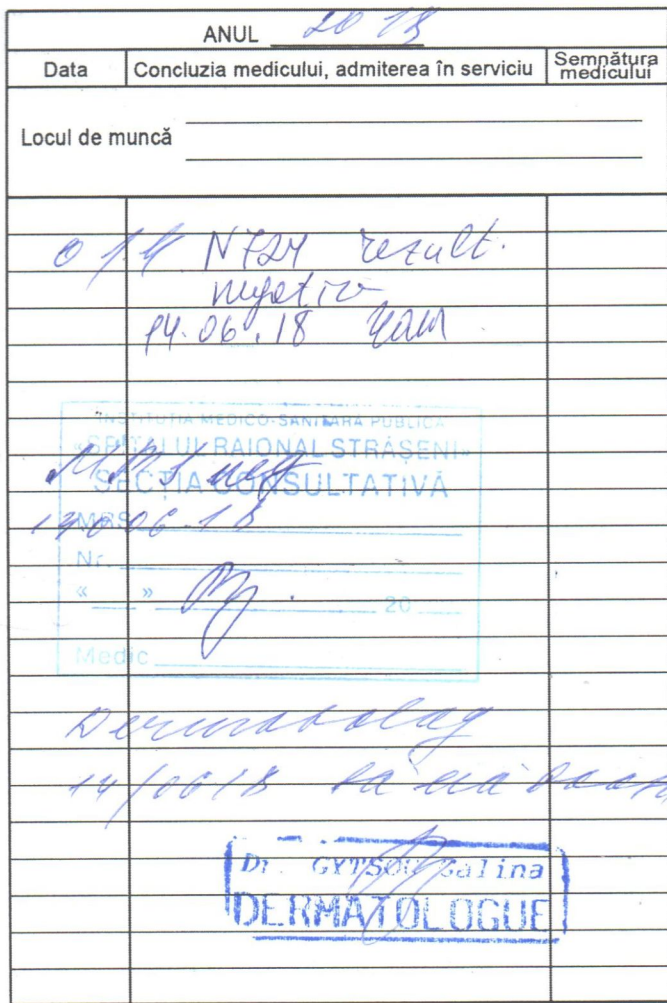 ANUL 2018
Data Concluzia medicului, admiterea în serviciu Semnătura medicului
Locul de muncă
N724 rezult.
negativ
14.06.18
INSTITUȚIA MEDICO-SANITARĂ PUBLICĂ
«SPITALUL RAIONAL STRĂȘENI»
SECȚIA CONSULTATIVĂ
MRS neg
MRS
14.06.18
Nr.
« » 20
Medic
Dermatolog
14/06/18
Dr. Galina
DERMATOLOGUE